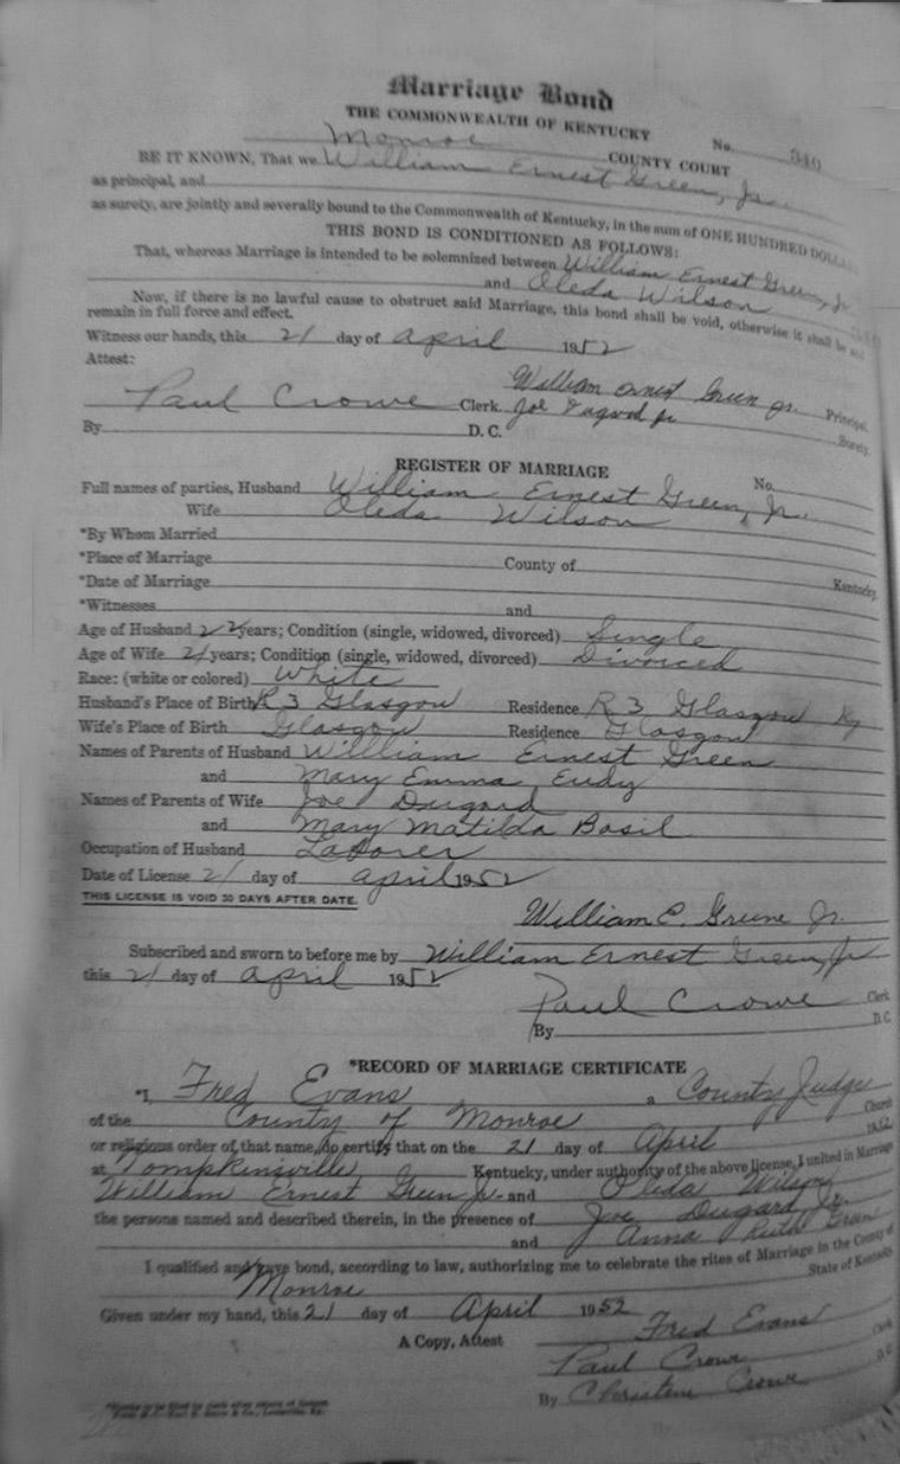 Marriage Bond
THE COMMONWEALTH OF KENTUCKY
No. 340
Monroe COUNTY COURT
BE IT KNOWN, That we William Ernest Green, Jr.
as principal, and
as surety, are jointly and severally bound to the Commonwealth of Kentucky, in the sum of ONE HUNDRED DOLLA
THIS BOND IS CONDITIONED AS FOLLOWS:
That, whereas Marriage is intended to be solemnized between William Ernest Green, Jr
and Oleda Wilson
Now, if there is no lawful cause to obstruct said Marriage, this bond shall be void, otherwise it shall be and
remain in full force and effect.
Witness our hands, this 21 day of April 1952
Attest:
William Ernest Green Jr. Principal.
Paul Crowe Clerk. Joe Jr Surety.
By D. C.
REGISTER OF MARRIAGE
No.
Full names of parties, Husband William Ernest Green, Jr.
Wife Oleda Wilson
*By Whom Married
*Place of Marriage County of Kentucky
*Date of Marriage
*Witnesses and
Age of Husband 22 years; Condition (single, widowed, divorced) Single
Age of Wife 21 years; Condition (single, widowed, divorced) Divorced
Race: (white or colored) White
Husband's Place of Birth R 3 Glasgow Residence R 3 Glasgow Ky
Wife's Place of Birth Glasgow Residence Glasgow
Names of Parents of Husband William Ernest Green
and Mary Emma Eudy
Names of Parents of Wife Joe Dugard
and Mary Matilda Basil
Occupation of Husband Laborer
Date of License 21 day of April 1952
THIS LICENSE IS VOID 30 DAYS AFTER DATE.
William E. Greene Jr.
Subscribed and sworn to before me by William Ernest Green, Jr
this 21 day of April 1952
Paul Crowe Clerk
By D. C.
*RECORD OF MARRIAGE CERTIFICATE
*I, Fred Evans a County Judge
of the County of Monroe Church
or religious order of that name, do certify that on the 21 day of April 1952
at Tompkinsville Kentucky, under authority of the above license, I united in Marriage
William Ernest Green Jr. and Oleda Wilson
the persons named and described therein, in the presence of Joe Dugard, Jr.
and Anna Ruth Green
I qualified and gave bond, according to law, authorizing me to celebrate the rites of Marriage in the County of
Monroe State of Kentucky
Given under my hand, this 21 day of April 1952
Fred Evans
A Copy, Attest
Paul Crowe Clerk
By Christene Crowe D. C.